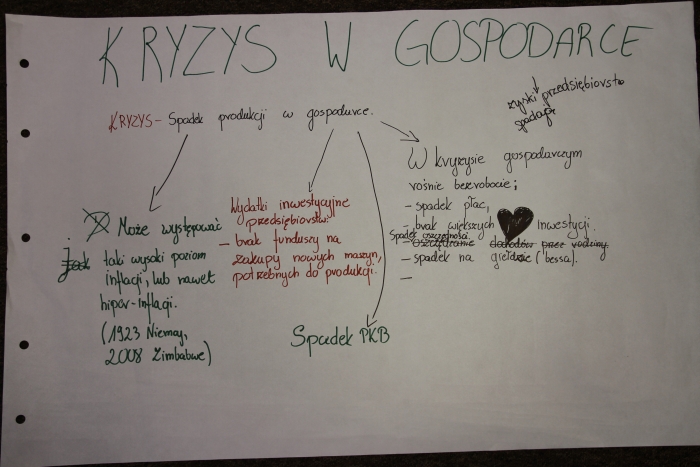 KRYZYS W GOSPODARCE
zyski przedsiębiorstw
spadają
KRYZYS - Spadek produkcji w gospodarce.
W kryzysie gospodarczym
rośnie bezrobocie;
- spadek płac,
- brak większych inwestycji.
spadek oszczędności.
- oszczędzanie dochodów przez rodziny.
- spadek na giełdzie (bessa).
-
Wydatki inwestycyjne
przedsiębiorstw:
- brak funduszy na
zakupy nowych maszyn,
potrzebnych do produkcji.
Może występować
taki wysoki poziom
inflacji, lub nawet
hiper-inflacji.
(1923 Niemcy,
2008 Zimbabwe)
Spadek PKB